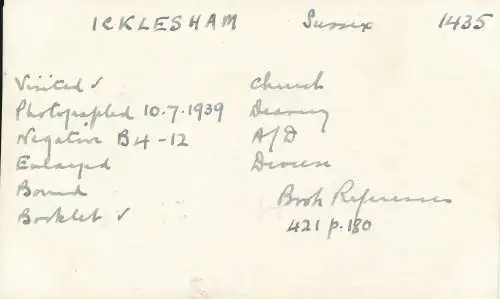 ICKLESHAM Sussex 1435
Visited ✓ Church
Photographed 10.7.1939 Deanery
Negative B4-12 A/D
Enlarged Diocese
Bound
Book References
Booklet ✓
421 p.180